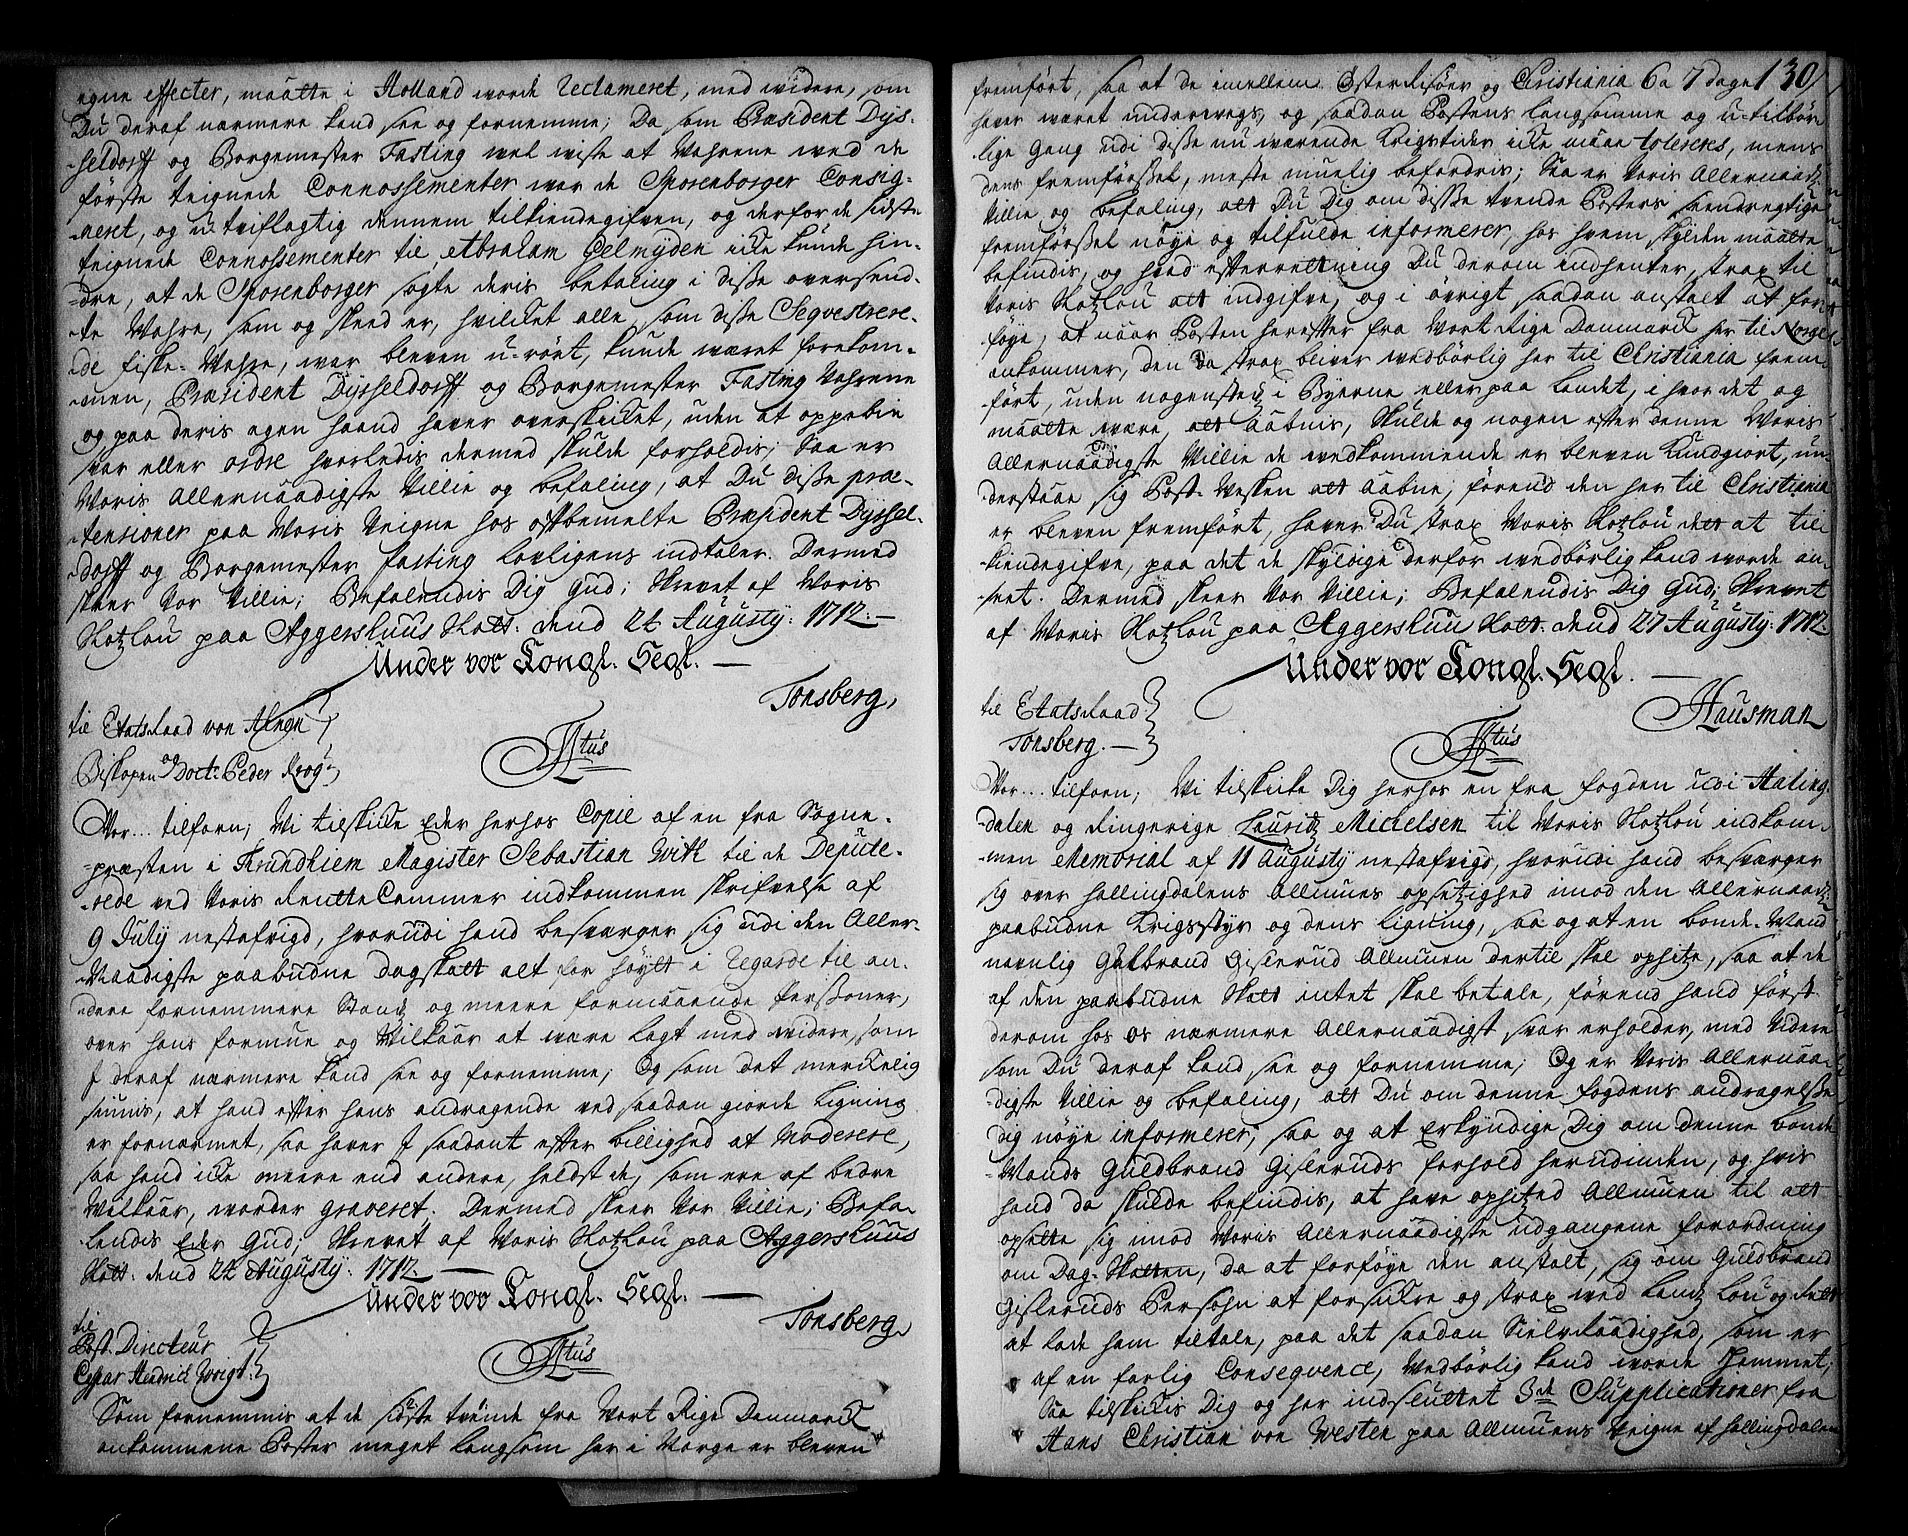 egne effecter, maatte i Holland worde Reclameret, med widere, som
Du deraf nærmere kand see og fornemme; Da som Præsident Dÿs-
-seldorff og Borgemester Fasting wel wiste at Wahrene med de
første teignede Connossementer war de Mosenborger Consig-
-neret, og u-twiflagtig dennem tilkiendegifven, og derfor de sidste
teignede Connossementer til Abraham Gelmÿden icke kunde hin-
-dre, at de Mosenborger søgte deris betaling i disse oversend-
-te Wahre, som og skeed er, hvilcket alle, som disse Seqvestrere-
-de Fiske-Wahre, war bleven u-rørt, kunde wæret forekom-
-men, Præsident Dÿsseldorff og Borgemester Fasting Wahrene
og paa deris egen haand haver overskicket, uden at oppebie
svar eller ordre hvorledis dermed skulde forholdis; Saa er
Woris Allernaadigste Villie og befaling, at Du disse præ-
-tensioner paa Woris Veigne hos oftbemelte Præsident Dÿssel-
-dorff og Borgemester Fasting lovligens indtaler. Dermed
skeer Vor Villie; Befalendis Dig Gud; Skrevet af Woris
Slotzlou paa Aggershuus Slott. dend 22 Augustÿ: 1712.
Under vor Kongl. Segl.
Tonsberg,
til Etatsraad von Ahnen
Biskopen og Doct: Peder Krog
Vor... tilforn; Wi tilskicke Eder herhos Copie af en fra Sogne-
-præsten i Trundhiem Magister Sebastian With til de Depute-
-rede ved Woris RentteCammer indkommen skrifvelse af
9 Julÿ nestafvigd, hvorudi hand besværger sig udi den Aller-
-Naadigste paabudne Dagskatt alt for høÿtt i Regarde til an-
-dere fornemmere Stand og meere formaaende Personer,
over hans formue og Wilkaar at være lagt med widere, som
I deraf nærmere kand see og fornemme; Og som det merckelig
siunis, at hand efter hans andragende ved saadan giorde Ligning
er fornærmet, saa haver I saadant efter billighed at Moderere,
saa hand icke meere end andere, heldst de, som ere af bedre
Wilkaar, worder graveret. Dermed skeer Vor Villie; Befa-
-lendis Eder Gud; Skrevet af Woris Slotzlou paa Aggershuus
Slott. dend 22 Augustÿ: 1712.
Under vor Kongl. Segl.
Tonsberg
til
Post-Directeur
Hendrich Woigt.
Som fornemmis at de sidste tvende fra Wort Rige Danmarck
ankommene Poster meget langsom her i Norge er bleven
130
fremført, saa at de imellem Øster Risøer og Christiania 6 a 7 dage
haver wæret underwegs, og saadan Postens langsomme og u-tilbør-
-lige Gang udi disse nu wærende Krigstider icke maae tolereres, mens
dens fremførsel, meste muelig befordris; Saa er Woris Allernaadigste
Villie og befaling, att Du Dig om disse tvende Posters seendregtige
fremførsel nøÿe og tilfulde informerer, hos hvem skylden maatte
befindis, og hvad efterrettning Du derom indhenter, strax til
Woris Slotzlou att indgifve, og i øvrigt saadan anstalt at for-
føÿe, at naar Posten herefter fra Wort Rige Danmarck her til Norge
ankommer, den da strax bliver wedbørlig her til Christiania frem-
ført, uden nogensteds i Byerne eller paa Landet, i hvor det og
maatte være, att aabnis, Skulde og nogen efter denne Woris
Allernaadigste Villie de wedkommende er bleven kundgiort, un-
-derstaae sig Post-Vesken att aabne, førend den her til Christiania
er bleven fremført, haver Du strax Woris Slotzlou dett at til-
-kiendegifve, paa det de skyldige derfor wedbørlig kand worde an-
-seet. Dermed skeer Vor Villie; Befalendis Dig Gud; Skrevet
af Woris Slotzlou paa Aggershuu Slott. dend 27 Augustÿ: 1712.
Under vor Kongl. Segl.
Hausman
til Etatsraad
Tonsberg.
Vor... tilforn; Wi tilskicke Dig herhos en fra fogden udi Haling-
dalen og Ringerige Lauritz Michelsen til Woris Slotzlou indkom-
-men Memorial af 11 Augustÿ nestafvigt, hvorudi hand besværger
sig over Hallingdalens Allmues opsetzighed imod den Allernaadigste
paabudne Krigsstyr og dens Ligning, saa og at en bonde-Mand
navnlig Gulbrand Gislerud Allmuen dertil skal ophitze, saa at de
af den paabudne Skatt intet skal betale, førend hand først
derom hos os nærmere Allernaadigst svar erholder, med Videre
som Du deraf kand see og fornemme; Og er Woris Allernaa-
-digste Villie og befaling, att Du om denne fogdens andragelse
Dig nøÿe informerer, saa og at erkyndige Dig om denne bonde
-Mands Guldbrand Gisleruds forhold herudinden, og hvis
hand da skulde befindis, at have ophitzed Allmuen til att
opsette sig imod Woris Allernaadigste udgangene forordning
om Dag-Skatten, da at forføÿe den anstalt, sig om Guldbrand
Gisleruds Persohn at forsickre og strax ved Landz Lou og Rett
at lade ham tiltale, paa det saadan Sielvraadighed, som er
af en farlig Conseqvence, wedbørlig kand worde hemmet;
Saa tilskickis Dig og her indsluttet 3de Supplicationer fra
Hans Christian von Westen paa Allmuens Veigne af Hallingdalen